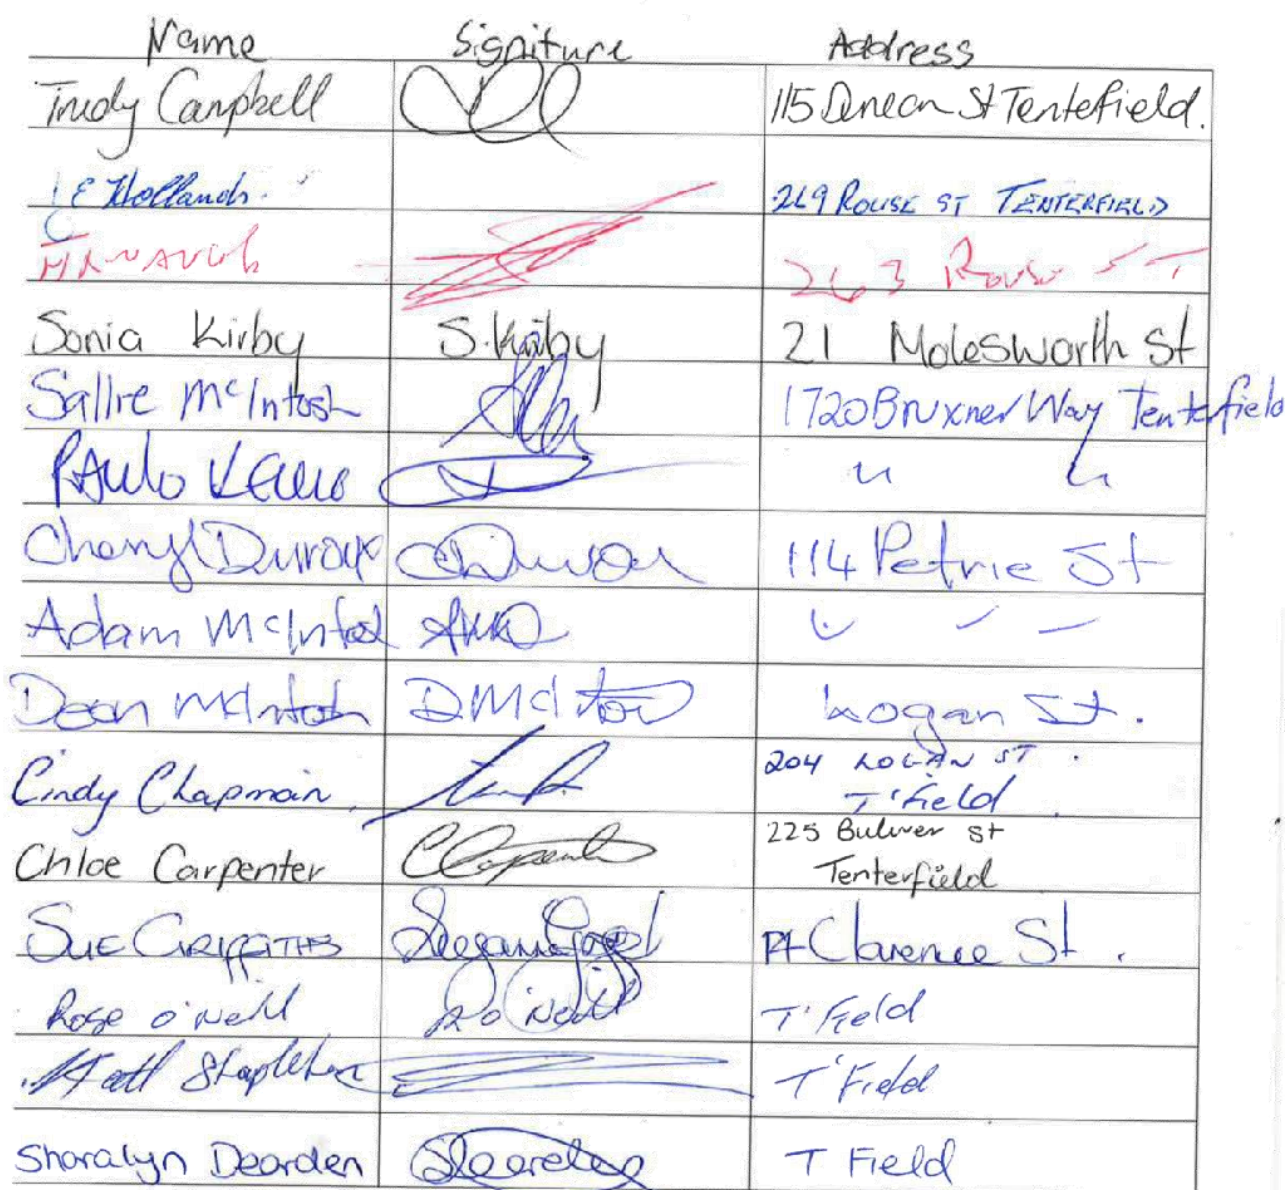 Name Signiture Address
Trudy Campbell 115 Duncan St Tentefield.
E Hollands. 269 ROUSE ST TENTERFIELD
263 Rouse ST
Sonia Kirby S. Kirby 21 Molesworth St
Sallie McIntosh 1720 Bruxner Way Tenterfield
PAULO " "
Cheryl Duroux 114 Petrie St
Adam McIntosh
Dean McIntosh D McIntosh Logan St.
Cindy Chapman. 204 LOGAN ST.
T'Field
Chloe Carpenter C Carpenter 225 Bulwer St
Tenterfield
SUE GRIFFITHS Clarence St.
Rose O'Neill R O'Neill T'Field
Matt Stapleton T'Field
Sharalyn Dearden T Field